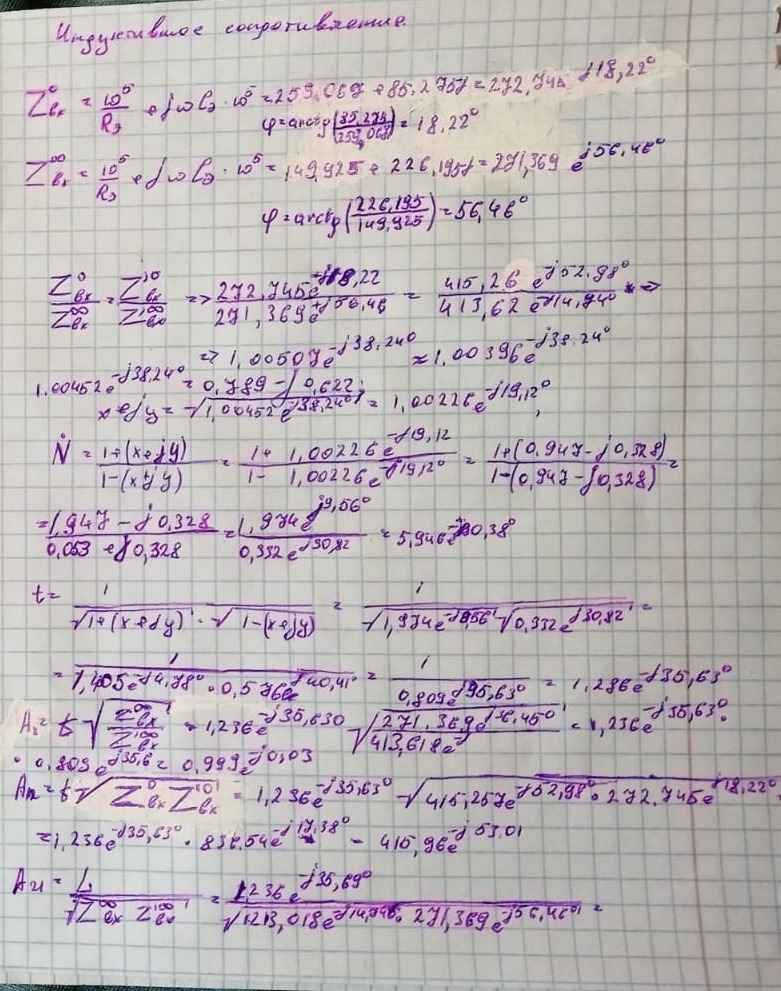 Индуктивное сопротивление.
Z⁰вх = 10⁵/Rэ + jωCэ · 10⁵ = 259,067 + 85,275j = 272,745 e^j18,22°
φ = arctg(85,275/259,068) = 18,22°
Z∞вх = 10⁵/Rэ + jωCэ · 10⁵ = 149,925 + 226,195j = 271,369 e^j56,46°
φ = arctg(226,195/149,925) = 56,46°
Z⁰вх/Z∞вх = Z'⁰вх/Z'∞вх => 272,745e^j18,22/271,369e^j56,46 = 415,26 e^j52,98°/413,62 e^j14,74° =>
=> 1,00507e^-j38,24° ≈ 1,00396e^-j38,24°
1,00452e^-j38,24° = 0,789 - j0,622;
x+jy = √1,00452e^-j38,24° = 1,00226e^-j19,12°;
N = 1+(x+jy)/1-(x+jy) = 1+ 1,00226e^-j19,12/1- 1,00226e^-j19,12° = 1+(0,947-j0,328)/1-(0,947-j0,328) =
= 1,947 - j0,328/0,053 + j0,328 = 1,974e^j9,56°/0,332e^j80,82 = 5,946e^-j90,38°
t = 1/√1+(x+jy) · √1-(x+jy) = 1/√1,974e^-j9,56° √0,332e^j80,82° =
= 1/1,405e^-j4,78° · 0,576e^j40,41° = 1/0,809e^j35,63° = 1,236e^-j35,63°
= 1,236e^-j35,630 √271,369e^j56,45°/413,618e = 1,236e^-j35,63° ·
· 0,809e^j35,6 = 0,999e^-j0,03
= t√Z⁰вх Z'⁰вх = 1,236e^-j35,63° · √415,257e^j52,98° · 272,745e^j18,22° =
= 1,236e^-j35,63° · - 415,96e^-j53,01
A₂₁ = = 1,236e^-j35,69°/ 271,369e^j56,46° =